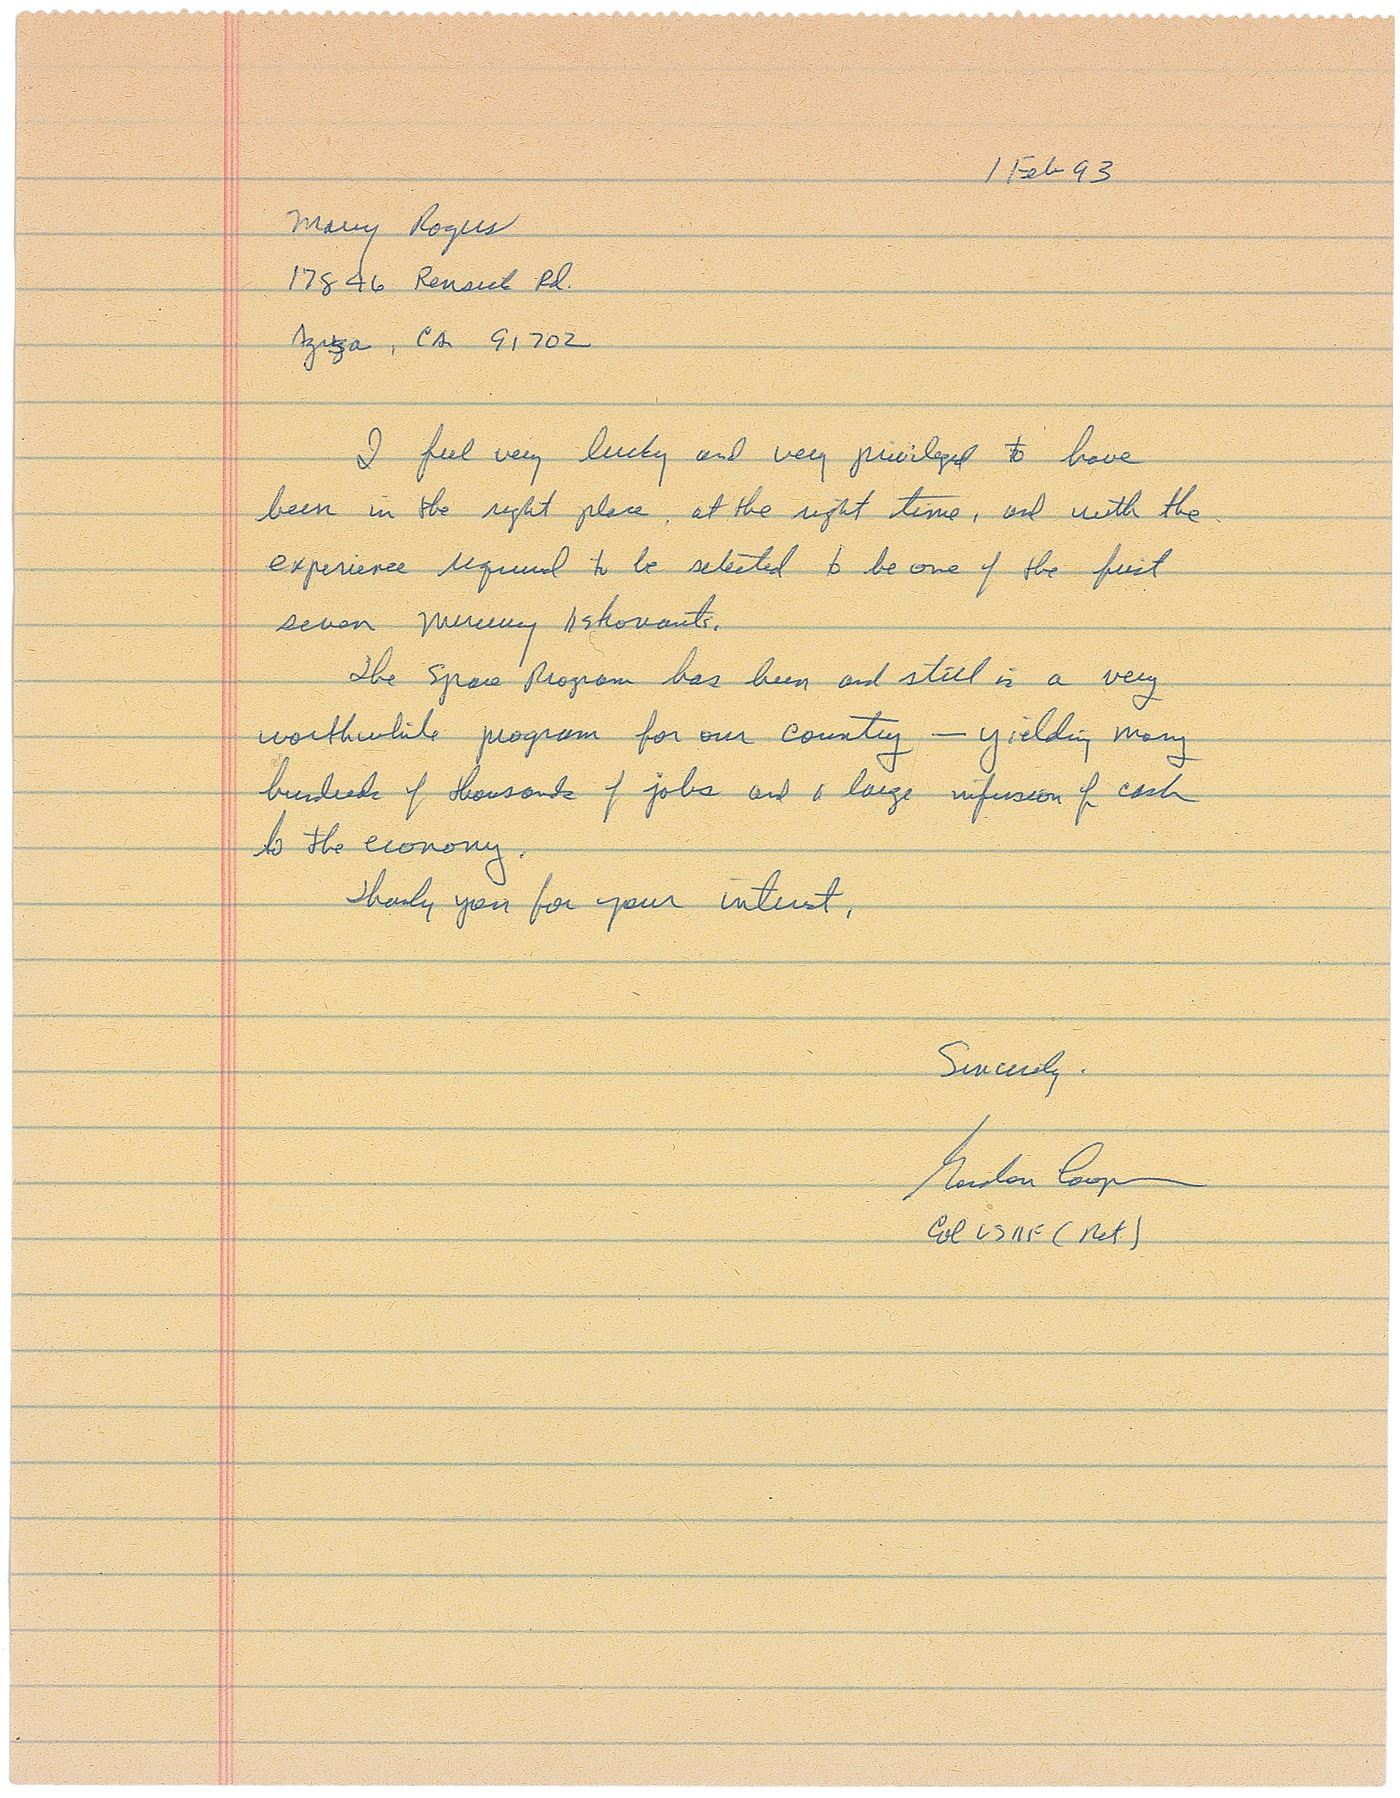 1 Feb 93
Mary Rogers
17846 Renwick Rd.
Azusa, CA 91702
I feel very lucky and very privileged to have
been in the right place, at the right time, and with the
experience required to be selected to be one of the first
seven Mercury Astronauts.
The Space Program has been and still is a very
worthwhile program for our country — yielding many
hundreds of thousands of jobs and a large infusion of cash
to the economy.
Thank you for your interest,
Sincerely.
Gordon Cooper
Col USAF (Ret)